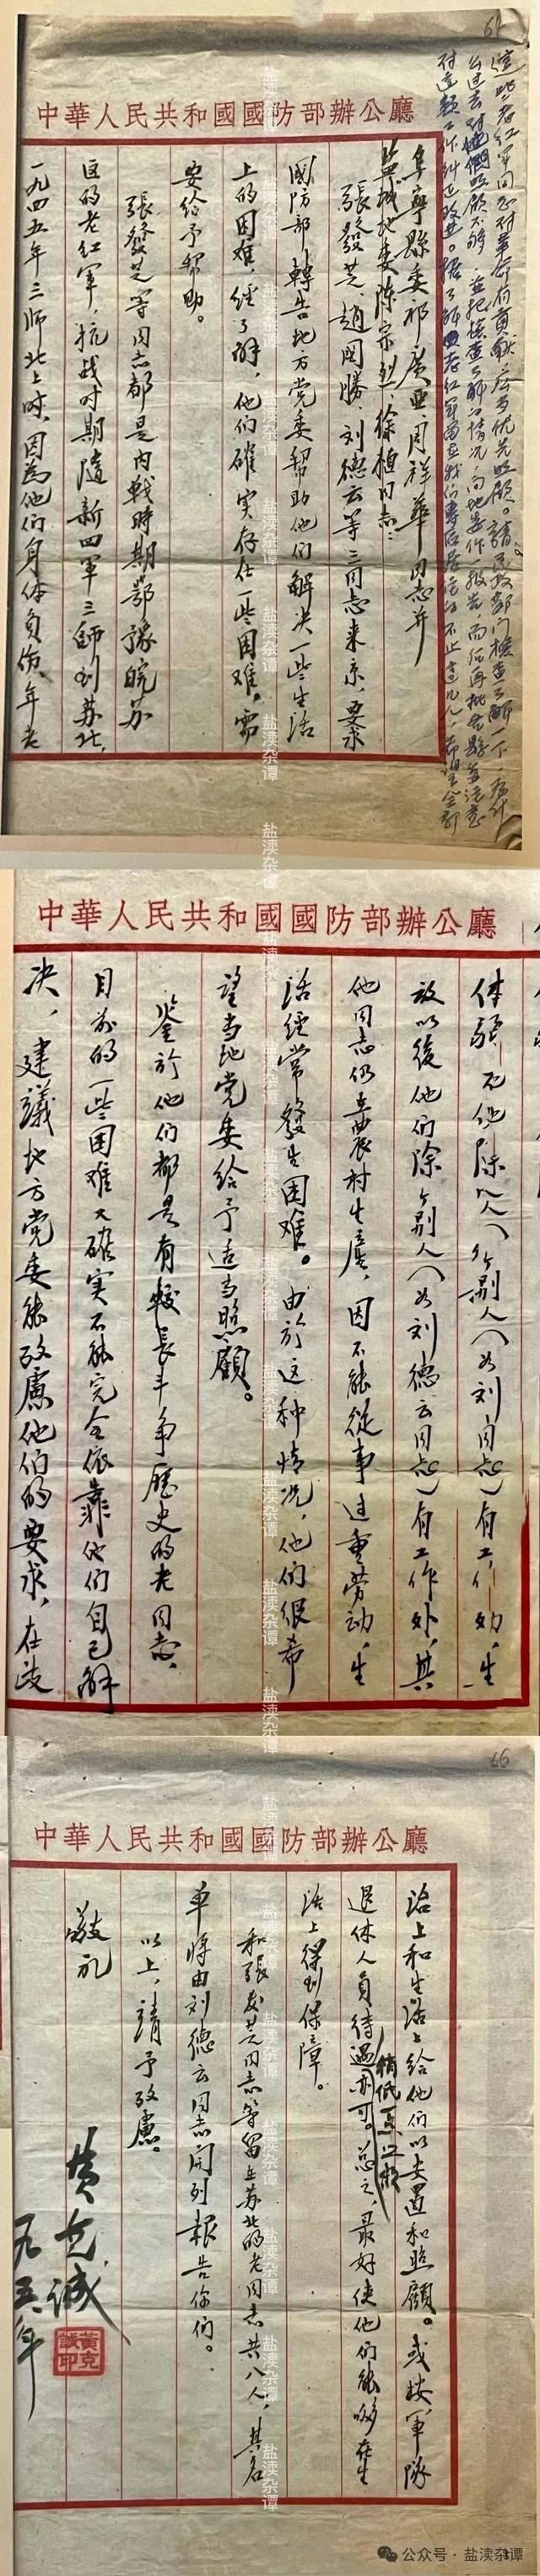 中華人民共和國國防部辦公廳
這些老红軍同志对革命有貢献，应当优先照顾。請民政部門檢查了解一下，為什
么过去对他們照顾不够，並把檢查了解的情况，向地委作一報告，而后再批各县委注意
对这類工作糾正改进。据了解老红軍
阜寧縣委祁广亚、周祥華同志并
盐城地委陈宗烈、徐植同志：
張發芝、趙國勝、刘德云等三同志来京，要求
國防部轉告地方党委帮助他们解决一些生活
上的困难，经了解，他们確实存在一些困难，需
要给予帮助。
張發芝等同志都是内戰時期鄂豫皖苏
区的老红軍，抗战时期隨新四軍三師到苏北，
一九四五年三师北上时，因為他们身体負伤、年老
中華人民共和國國防部辦公廳
体弱
除個别人（如刘同志）有工作外，生
放以後他们除個别人（如刘德云同志）有工作外，其
他同志仍在農村生產，因不能從事过重劳动，生
活经常發生困难。由於这种情况，他们很希
望当地党委给予适当照顧。
鉴於他们都是有較長斗争歷史的老同志，
目前的一些困难又確实不能完全依靠他们自己解
决，建議地方党委能攷慮他们的要求，在政
66
中華人民共和國國防部辦公廳
治上和生活上给他们以安置和照顧。或按軍隊
稍低一点
退休人員待遇亦可。总之，最好使他们能够在生
活上得到保障。
和張發芝同志等留在苏北的老同志共八人，其名
单将由刘德云同志開列報告你们。
以上，請予攷慮。
敬礼
黄克诚
黃克
誠印
一九五 年
盐渎杂谭
公众号 · 盐渎杂谭